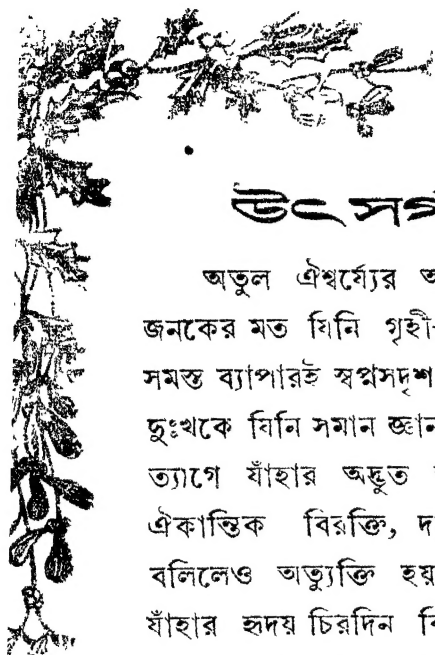 উৎসর্গ
অতুল ঐশ্বর্য্যের অ
জনকের মত যিনি গৃহী
সমস্ত ব্যাপারই স্বপ্নসদৃশ
দুঃখকে যিনি সমান জ্ঞান
ত্যাগে যাঁহার অদ্ভুত
ঐকান্তিক বিরক্তি, দ
বলিলেও অত্যুক্তি হয়
যাঁহার হৃদয় চিরদিন বি